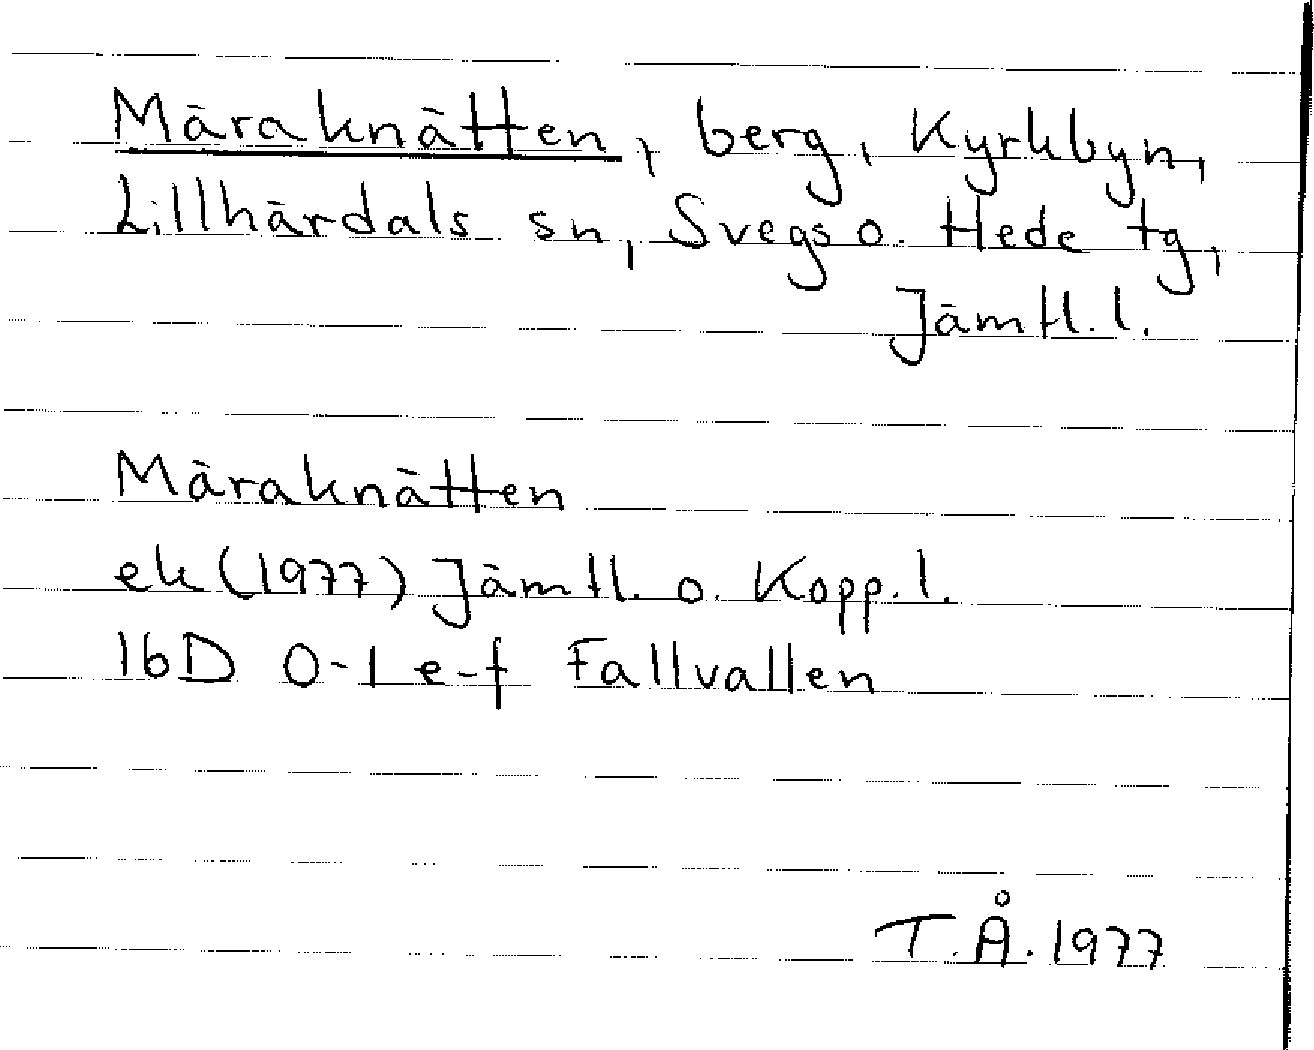 Märaknätten, berg, Kyrkbyn,
Lillhärdals sn, Svegs o. Hede tg,
Jämtl. l.
Märaknätten
ek (1977) Jämtl. o. Kopp. l.
16D 0-1 e-f Fallvallen
T.Å. 1977